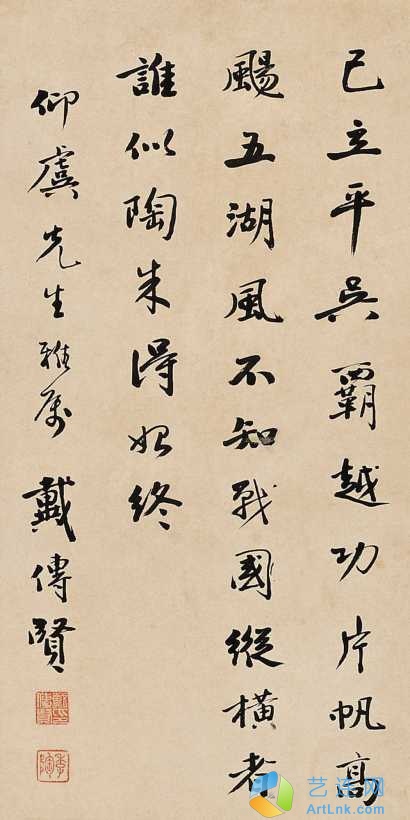 已立平吳覇越功片帆高
颺五湖風不知戰國縱橫者
誰似陶朱得始終
仰虞先生雅屬 戴傳賢
季陶
艺连网
ArtLnk.com